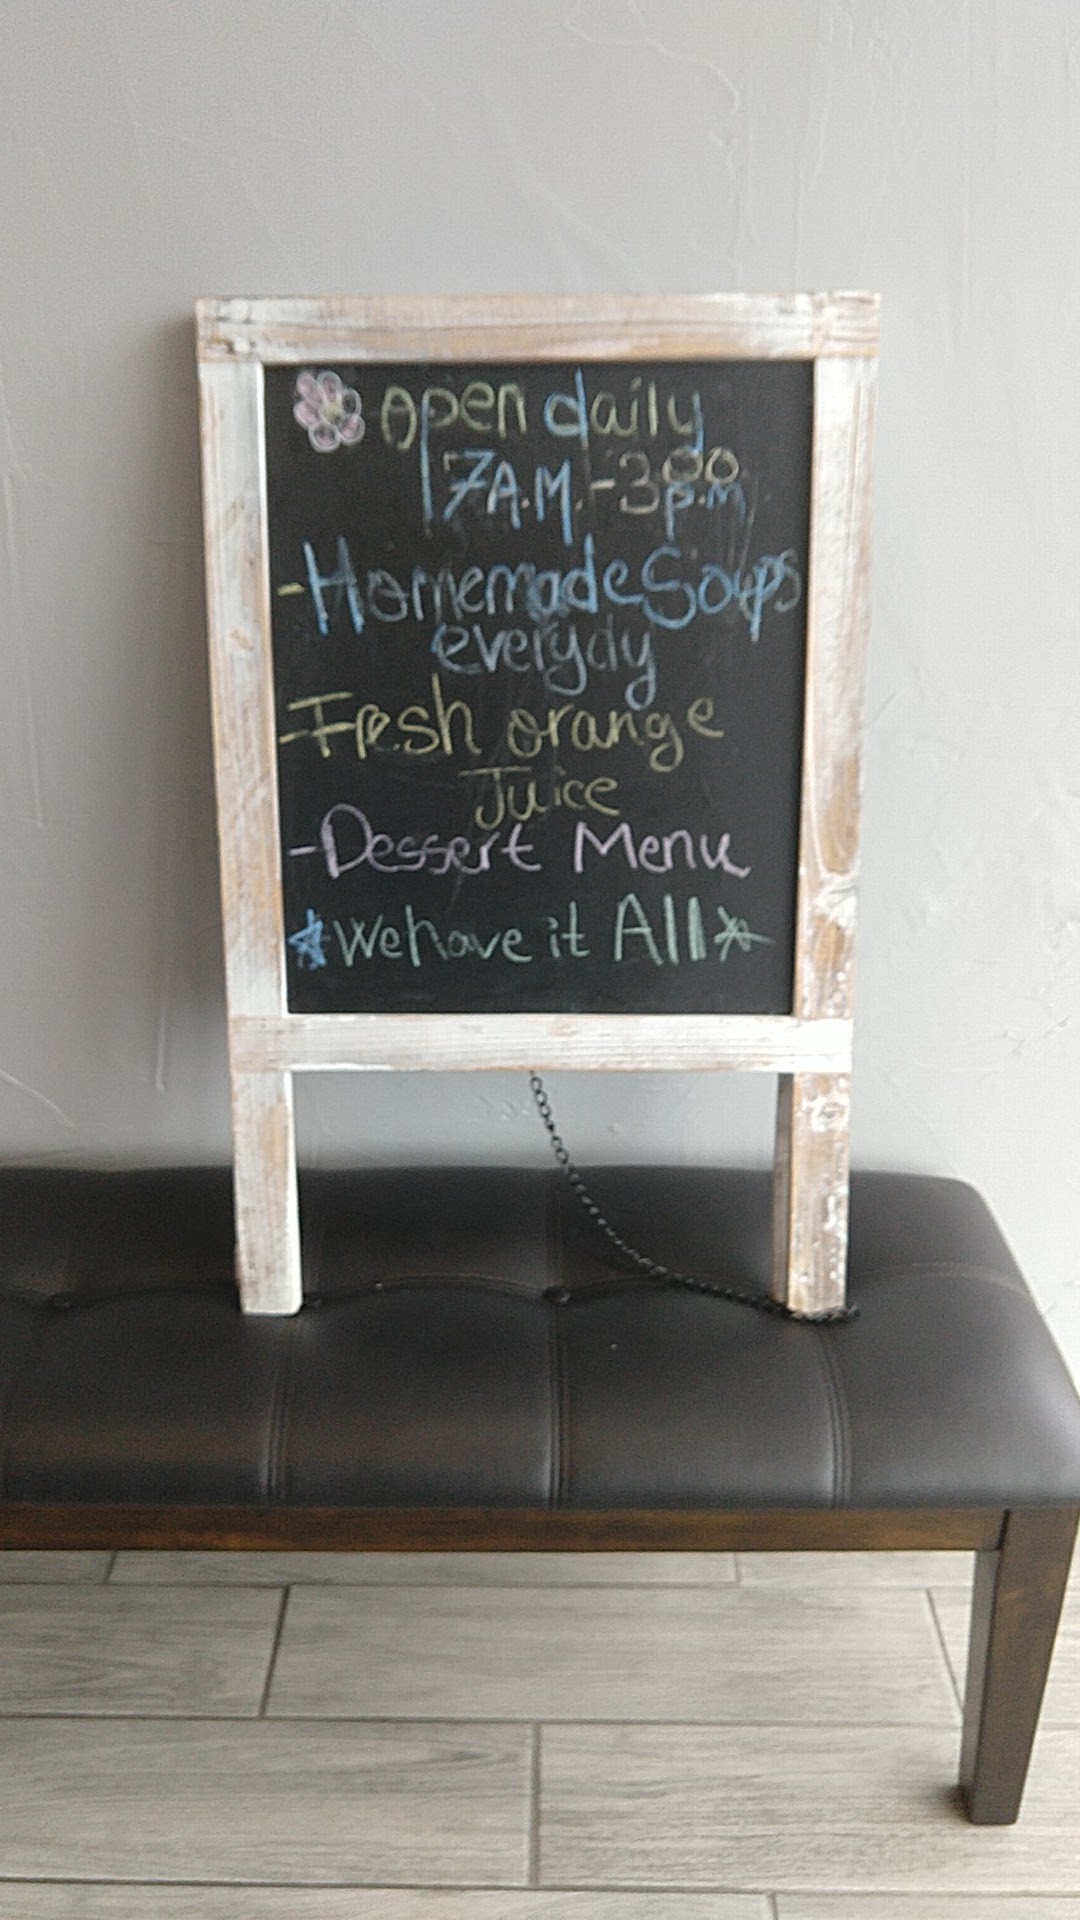 open daily
7A.M.-3:00 p.m
-Homemade Soups
everydy
-Fresh orange
Juice
-Dessert Menu
We have it All